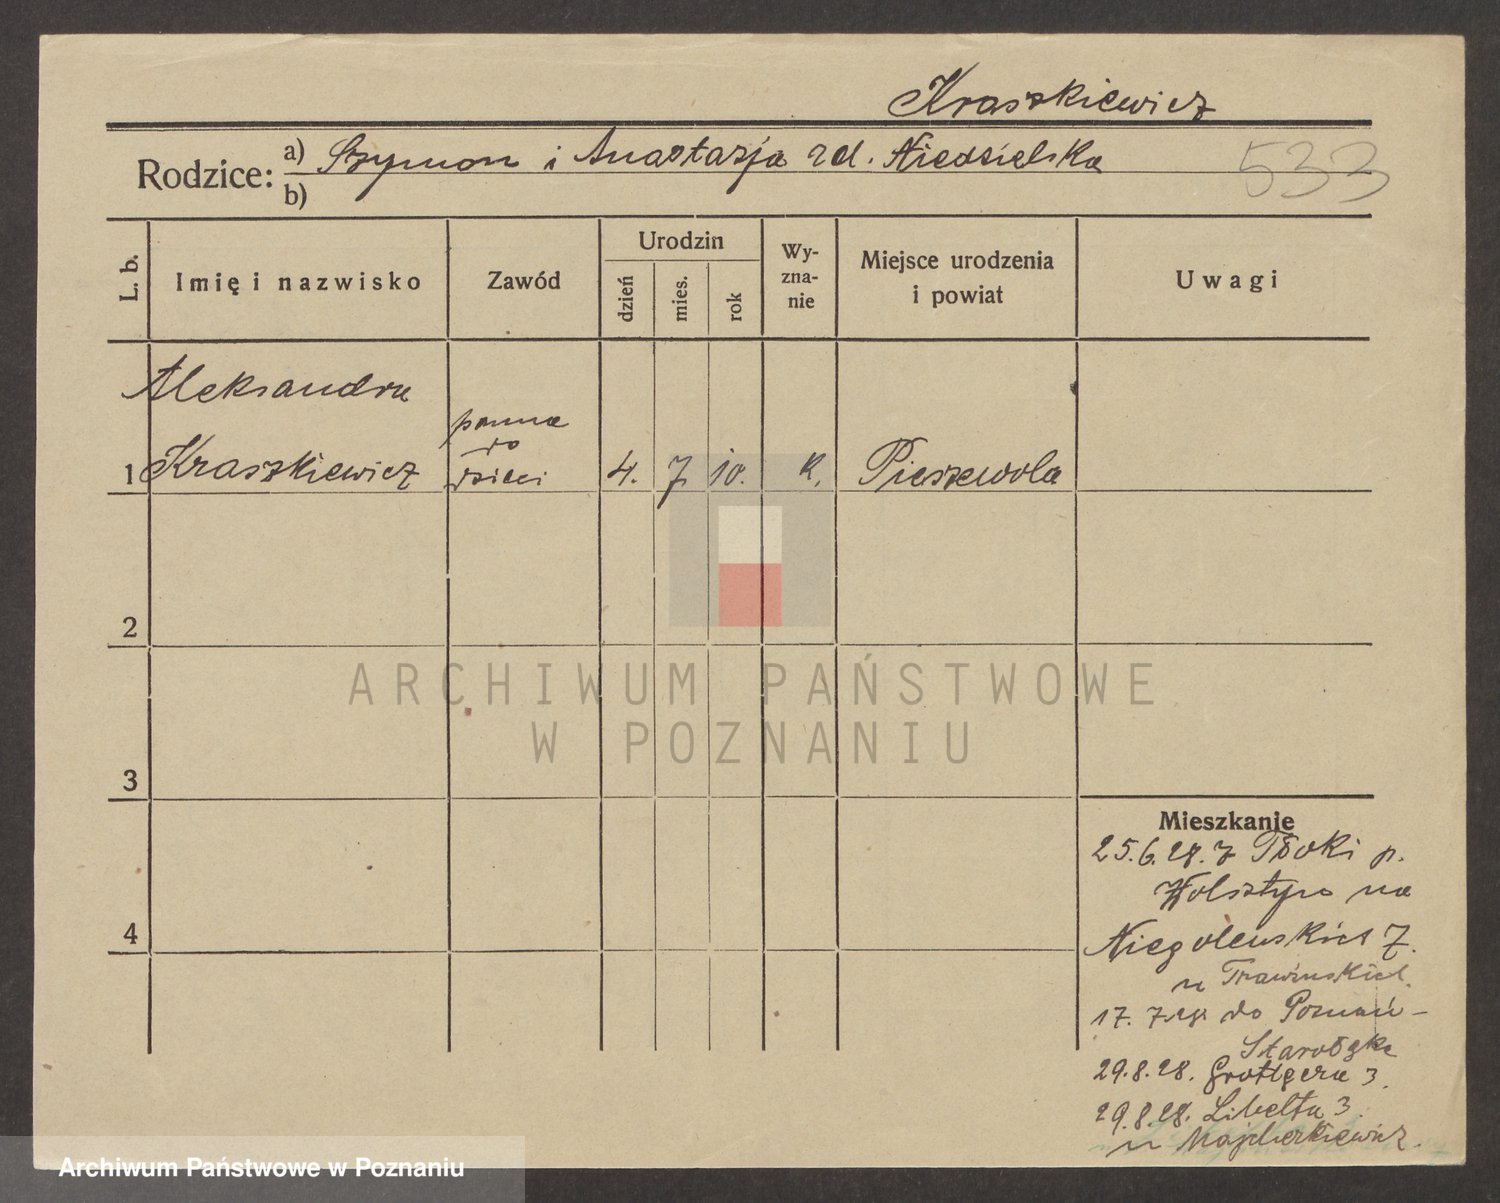 Kraszkiewicz
Rodzice: a) Szymon i Anastazja zd. Niedzielska
b)
533
L. b. Imię i nazwisko Zawód Urodzin dzień mies. rok Wy-zna-nie Miejsce urodzenia i powiat Uwagi
Aleksandra
1 Kraszkiewicz panna do dzieci 4. 7. 10. k. Pieszewola
2
3
4
ARCHIWUM PAŃSTWOWE
W POZNANIU
Mieszkanie
25.6.28. z Tłoki p.
Wolsztyn na
Niegolewskich 7.
u Trawińskich.
17. 7.28 do Poznań-
Starołęka
29.8.28. Grottgera 3.
29.8.28. Libelta 3.
u Majcherkiewicz.
Archiwum Państwowe w Poznaniu